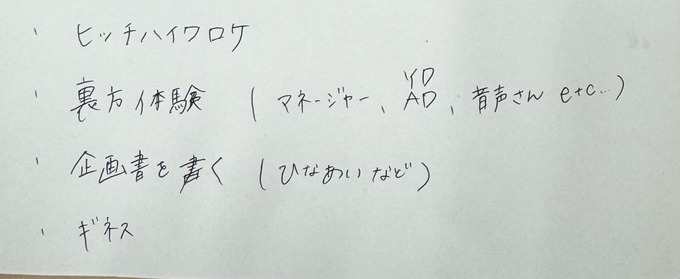 ・ヒッチハイクロケ
・裏方体験(マネージャー、YD AD、音声さん etc…)
・企画書を書く(ひなあいなど)
・ギネス